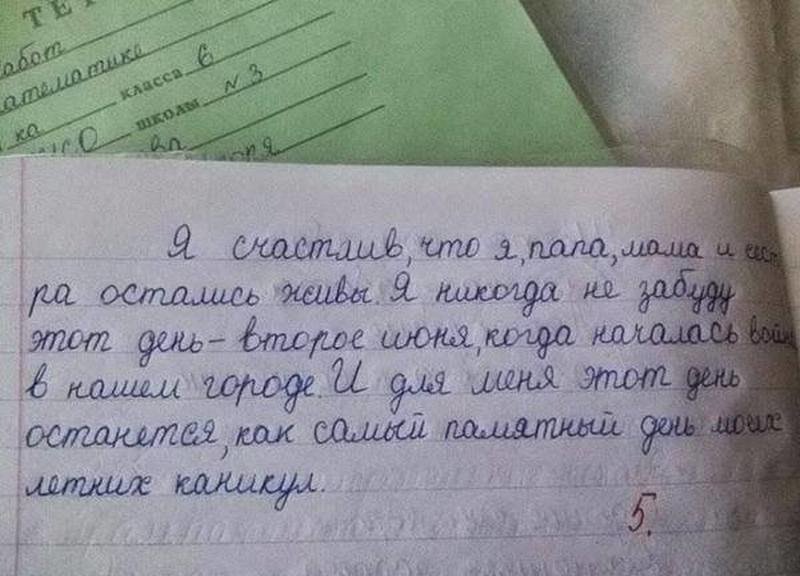 ТЕТ
абот
атематике
ка класса 6
школы № 3
Я счастлив, что я, папа, мама и сест-
ра остались живы. Я никогда не забуду
этот день – второе июня, когда началась война
в нашем городе. И для меня этот день
останется, как самый памятный день моих
летних каникул.
5.